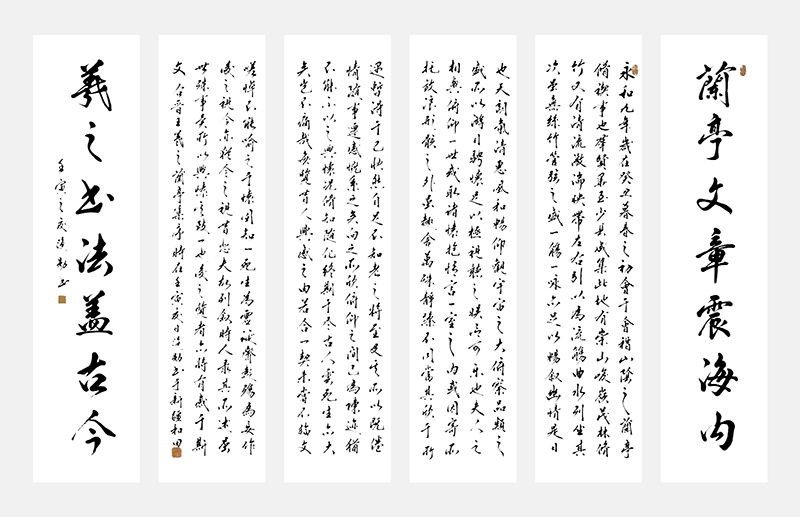 蘭亭文章震海内
永和九年歲在癸丑暮春之初會于會稽山陰之蘭亭
脩禊事也羣賢畢至少長咸集此地有崇山峻嶺茂林脩
竹又有清流激湍映帶左右引以為流觴曲水列坐其
次雖無絲竹管弦之盛一觴一詠亦足以暢敘幽情是日
也天朗氣清惠風和暢仰觀宇宙之大俯察品類之
盛所以遊目騁懷足以極視聽之娛信可樂也夫人之
相與俯仰一世或取諸懷抱悟言一室之内或因寄所
託放浪形骸之外雖趣舍萬殊靜躁不同當其欣于所
遇暫得于己快然自足不知老之將至及其所之既倦
情隨事遷感慨係之矣向之所欣俯仰之間已為陳迹猶
不能不以之興懷況脩短隨化終期于盡古人云死生亦大
矣豈不痛哉每覽昔人興感之由若合一契未嘗不臨文
嗟悼不能喻之于懷固知一死生為虛誕齊彭殤為妄作
後之視今亦猶今之視昔悲夫故列敘時人錄其所述雖
世殊事異所以興懷其致一也後之覽者亦將有感于斯
文 右晉王羲之蘭亭集序時在壬寅夏日 書于新疆和田
羲之书法蓋古今
壬寅之夏 书